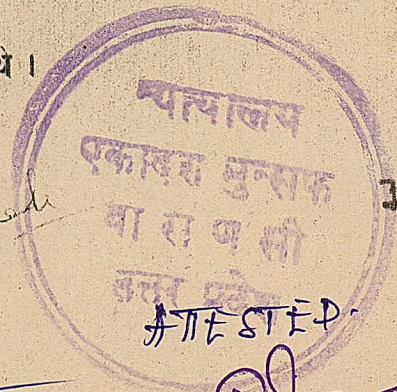 न्यायालय
एकादश मुन्सफ
वाराणसी
उत्तर प्रदेश
ATTESTED.